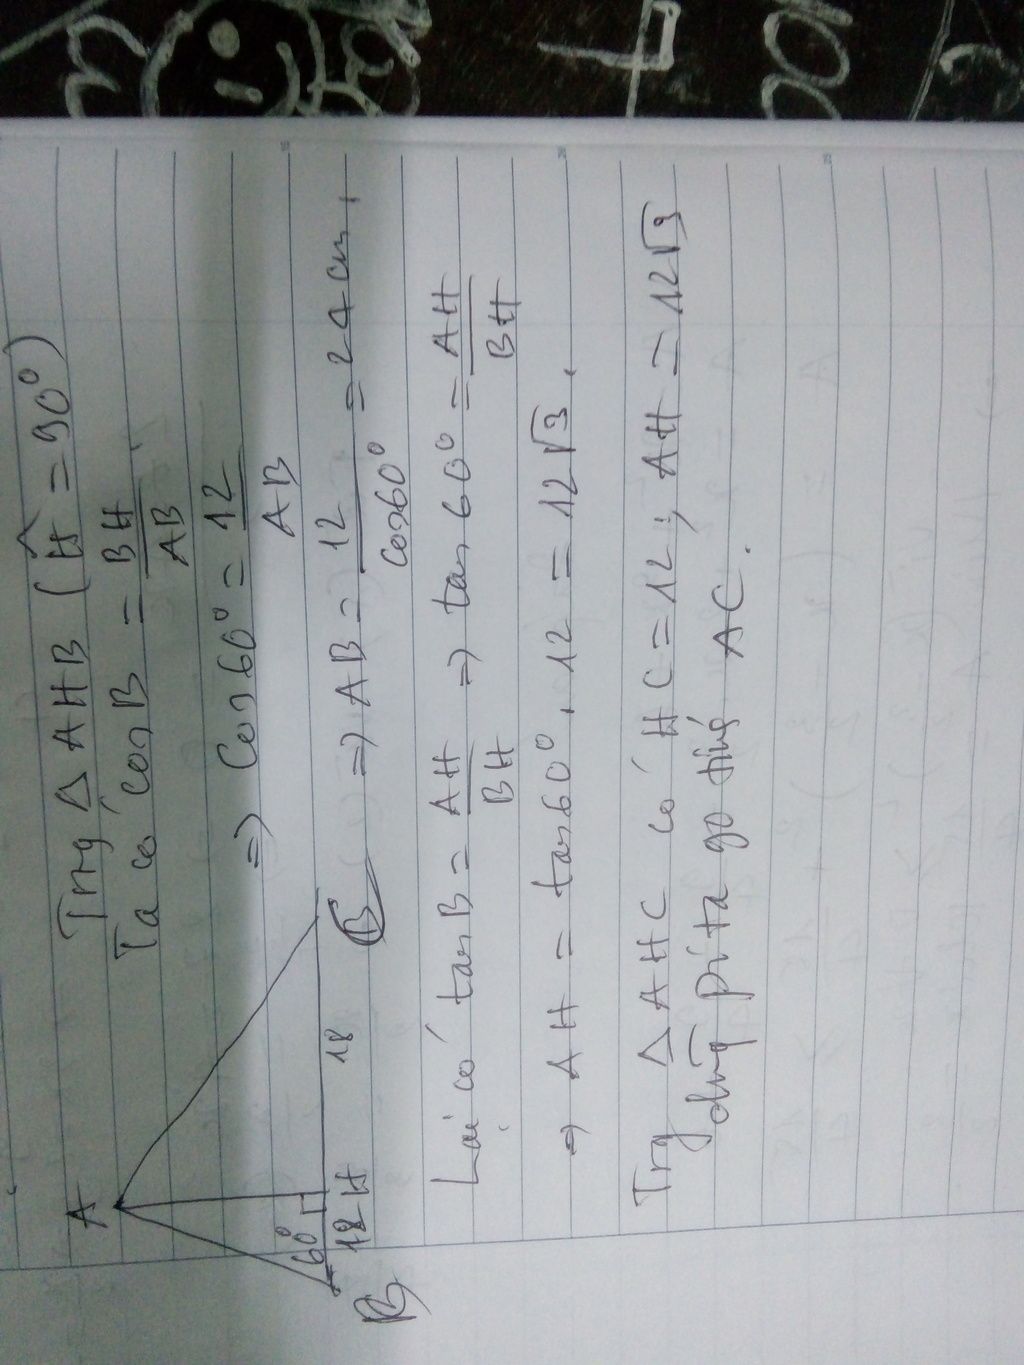 A
60°
B
12 H
18
B
Trg Δ AHB (Ĥ = 90°)
Ta có cos B = BH/AB
=> Cos 60° = 12/AB
=> AB = 12/cos60° = 24 cm,
Lại có tan B = AH/BH => tan 60° = AH/BH
=> AH = tan 60° . 12 = 12√3 .
Trg Δ AHC có HC = 12, AH = 12√3
dùng pita go tính AC .